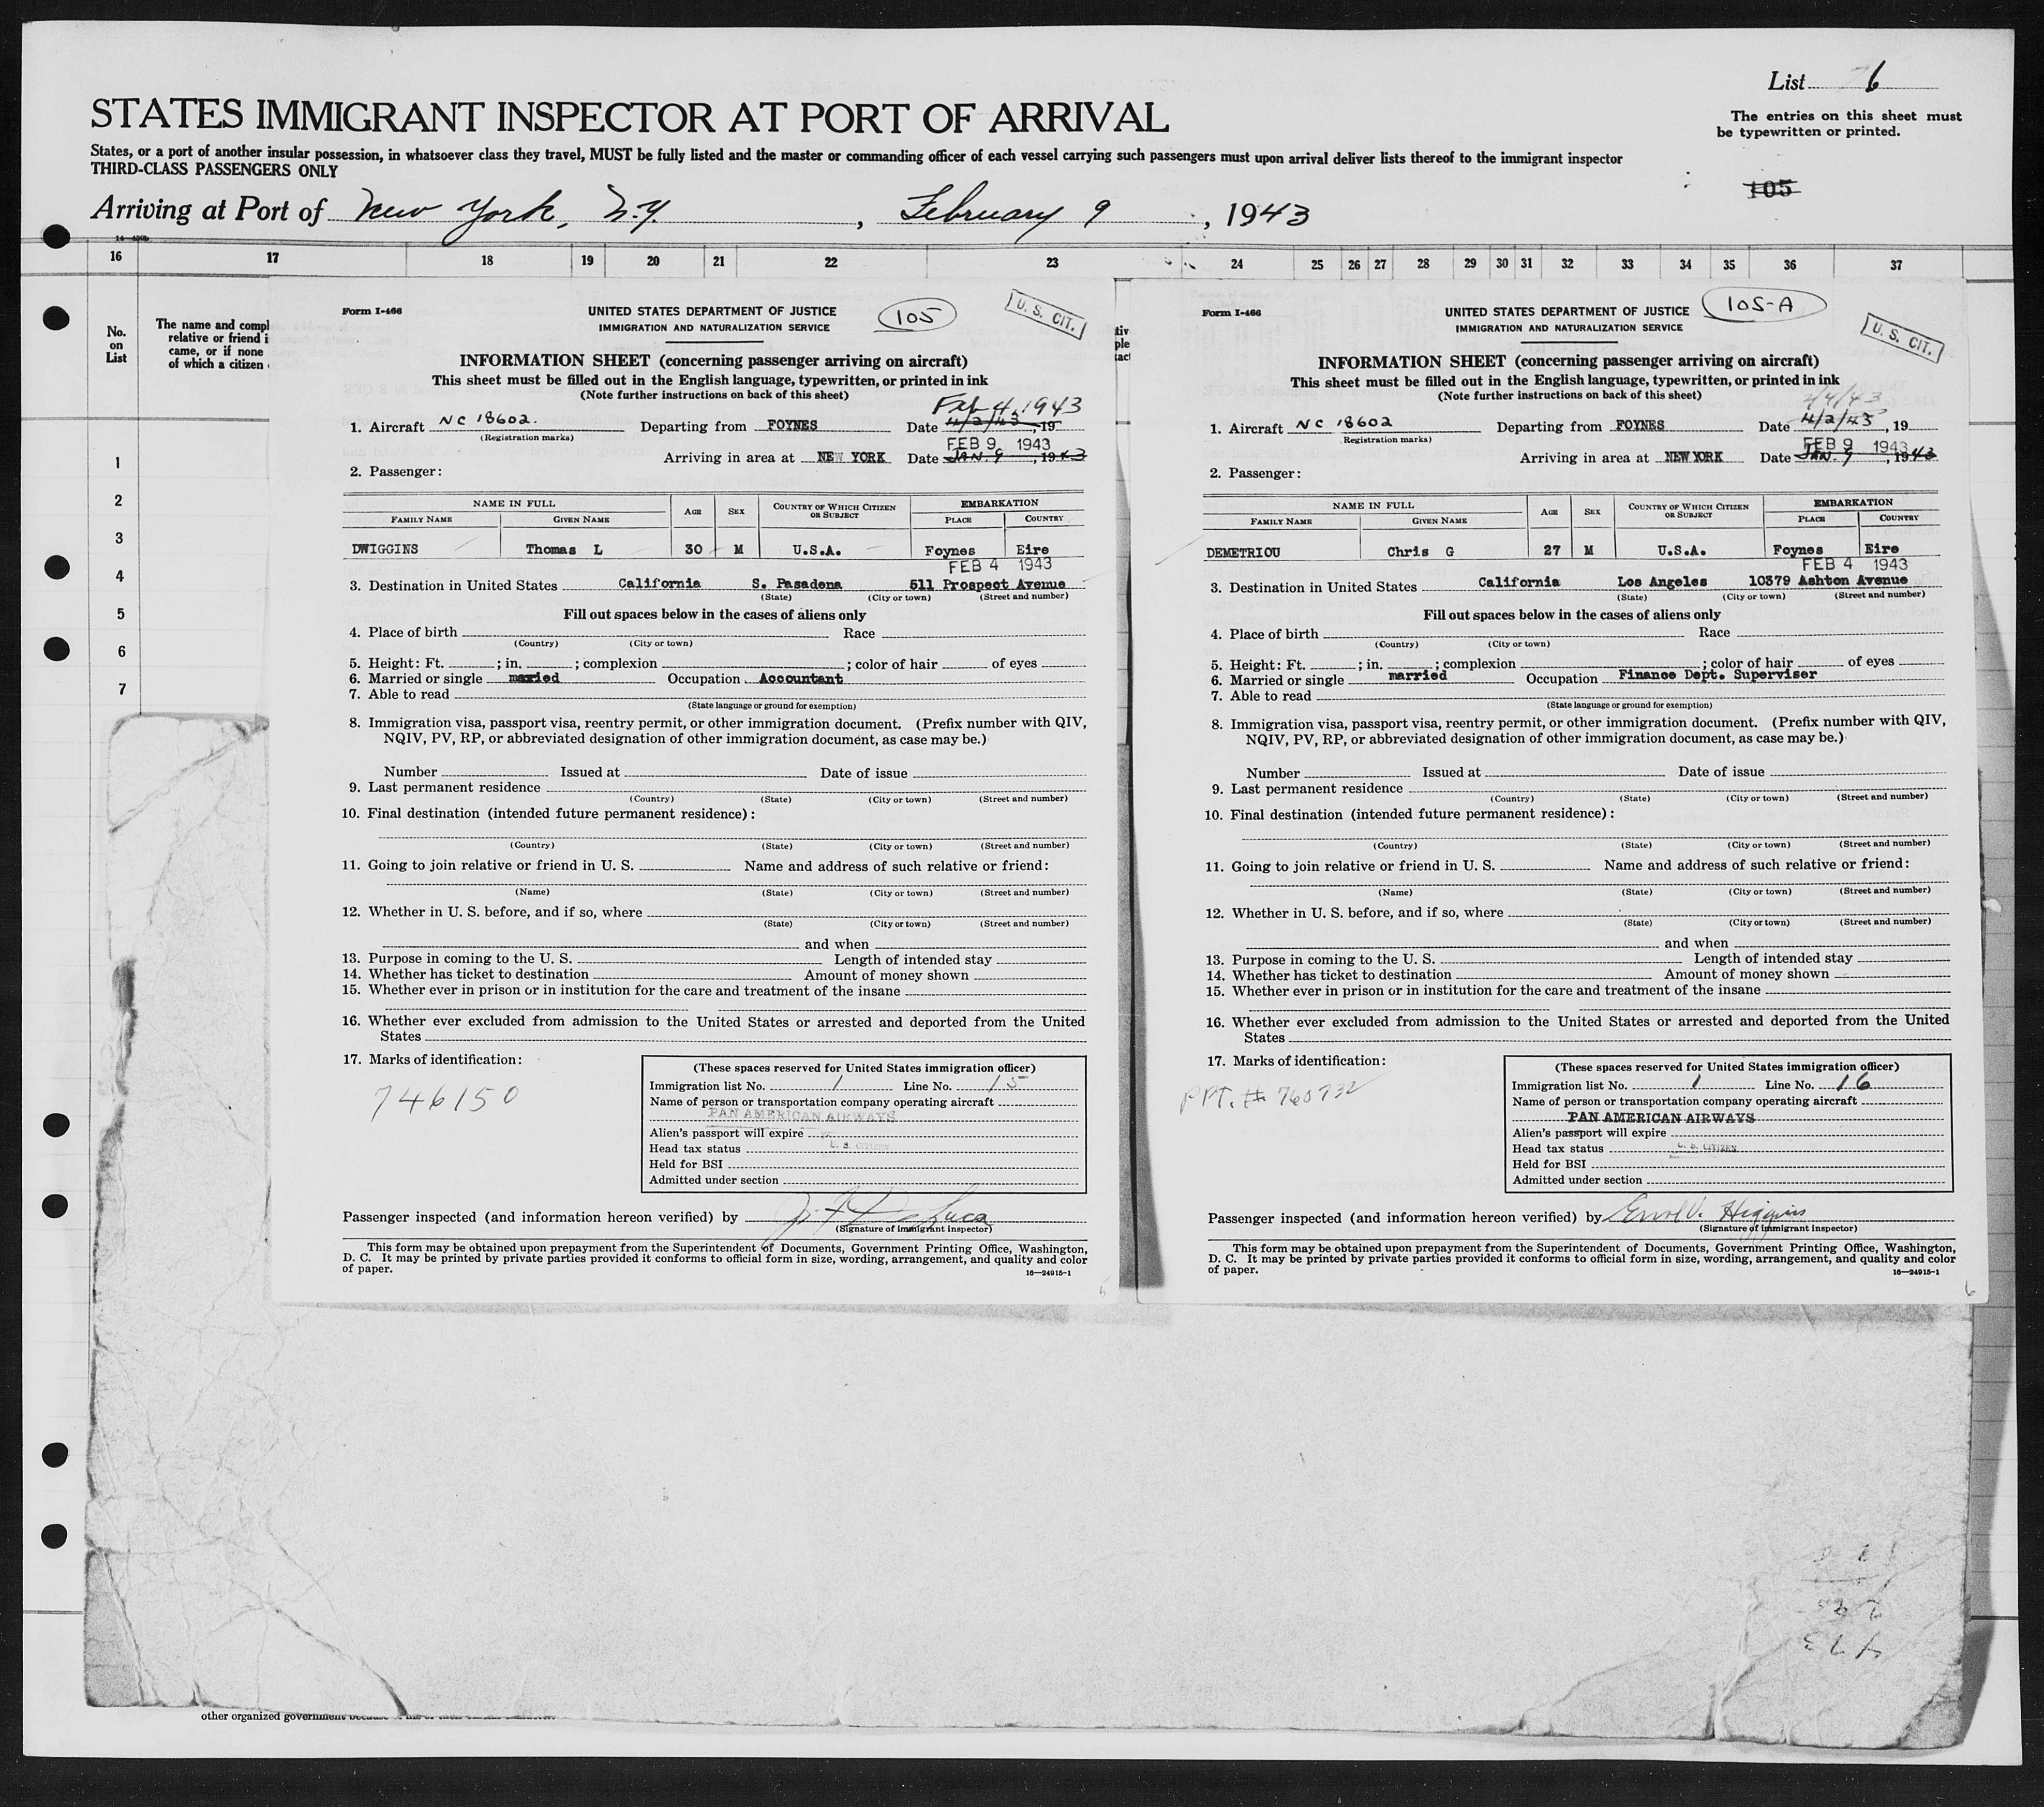 List 6
STATES IMMIGRANT INSPECTOR AT PORT OF ARRIVAL
The entries on this sheet must
be typewritten or printed.
States, or a port of another insular possession, in whatsoever class they travel, MUST be fully listed and the master or commanding officer of each vessel carrying such passengers must upon arrival deliver lists thereof to the immigrant inspector
THIRD-CLASS PASSENGERS ONLY
105
Arriving at Port of New York, N.Y. , February 9 , 1943
16 17 18 19 20 21 22 23 24 25 26 27 28 29 30 31 32 33 34 35 36 37
No.
on
List
The name and compl
relative or friend i
came, or if none
of which a citizen
1
2
3
4
5
6
7
Form I-466
UNITED STATES DEPARTMENT OF JUSTICE
IMMIGRATION AND NATURALIZATION SERVICE
105
U. S. CIT.
INFORMATION SHEET (concerning passenger arriving on aircraft)
This sheet must be filled out in the English language, typewritten, or printed in ink
(Note further instructions on back of this sheet)
Feb 4, 1943
1. Aircraft NC 18602. Departing from FOYNES Date 4/2/43, 19
(Registration marks)
FEB 9 1943
Arriving in area at NEW YORK Date JAN. 9, 1943
2. Passenger:
NAME IN FULL AGE SEX COUNTRY OF WHICH CITIZEN OR SUBJECT EMBARKATION
FAMILY NAME GIVEN NAME PLACE COUNTRY
DWIGGINS Thomas L 30 M U.S.A. Foynes Eire
FEB 4 1943
3. Destination in United States California S. Pasadena 511 Prospect Avenue
(State) (City or town) (Street and number)
Fill out spaces below in the cases of aliens only
4. Place of birth Race
(Country) (City or town)
5. Height: Ft. ; in. ; complexion ; color of hair of eyes
6. Married or single married Occupation Accountant
7. Able to read
(State language or ground for exemption)
8. Immigration visa, passport visa, reentry permit, or other immigration document. (Prefix number with QIV,
NQIV, PV, RP, or abbreviated designation of other immigration document, as case may be.)
Number Issued at Date of issue
9. Last permanent residence
(Country) (State) (City or town) (Street and number)
10. Final destination (intended future permanent residence):
(Country) (State) (City or town) (Street and number)
11. Going to join relative or friend in U. S. Name and address of such relative or friend:
(Name) (State) (City or town) (Street and number)
12. Whether in U. S. before, and if so, where
(State) (City or town) (Street and number)
and when
13. Purpose in coming to the U. S. Length of intended stay
14. Whether has ticket to destination Amount of money shown
15. Whether ever in prison or in institution for the care and treatment of the insane
16. Whether ever excluded from admission to the United States or arrested and deported from the United
States
17. Marks of identification:
746150
(These spaces reserved for United States immigration officer)
Immigration list No. 1 Line No. 15
Name of person or transportation company operating aircraft
PAN AMERICAN AIRWAYS
Alien's passport will expire
Head tax status U. S. CITIZEN
Held for BSI
Admitted under section
Passenger inspected (and information hereon verified) by
(Signature of immigrant inspector)
This form may be obtained upon prepayment from the Superintendent of Documents, Government Printing Office, Washington,
D. C. It may be printed by private parties provided it conforms to official form in size, wording, arrangement, and quality and color
of paper.
16—24915-1
5
Form I-466
UNITED STATES DEPARTMENT OF JUSTICE
IMMIGRATION AND NATURALIZATION SERVICE
105-A
U. S. CIT.
INFORMATION SHEET (concerning passenger arriving on aircraft)
This sheet must be filled out in the English language, typewritten, or printed in ink
(Note further instructions on back of this sheet)
2/4/43
1. Aircraft NC 18602 Departing from FOYNES Date 4/2/43, 19
Registration marks)
FEB 9 1943
Arriving in area at NEW YORK Date JAN. 9, 1943
2. Passenger:
NAME IN FULL AGE SEX COUNTRY OF WHICH CITIZEN OR SUBJECT EMBARKATION
FAMILY NAME GIVEN NAME PLACE COUNTRY
DEMETRIOU Chris G 27 M U.S.A. Foynes Eire
FEB 4 1943
3. Destination in United States California Los Angeles 10379 Ashton Avenue
(State) (City or town) (Street and number)
Fill out spaces below in the cases of aliens only
4. Place of birth Race
(Country) (City or town)
5. Height: Ft. ; in. ; complexion ; color of hair of eyes
6. Married or single married Occupation Finance Dept. Superviser
7. Able to read
(State language or ground for exemption)
8. Immigration visa, passport visa, reentry permit, or other immigration document. (Prefix number with QIV,
NQIV, PV, RP, or abbreviated designation of other immigration document, as case may be.)
Number Issued at Date of issue
9. Last permanent residence
(Country) (State) (City or town) (Street and number)
10. Final destination (intended future permanent residence):
(Country) (State) (City or town) (Street and number)
11. Going to join relative or friend in U. S. Name and address of such relative or friend:
(Name) (State) (City or town) (Street and number)
12. Whether in U. S. before, and if so, where
(State) (City or town) (Street and number)
and when
13. Purpose in coming to the U. S. Length of intended stay
14. Whether has ticket to destination Amount of money shown
15. Whether ever in prison or in institution for the care and treatment of the insane
16. Whether ever excluded from admission to the United States or arrested and deported from the United
States
17. Marks of identification:
PPT. # 760732
(These spaces reserved for United States immigration officer)
Immigration list No. 1 Line No. 16
Name of person or transportation company operating aircraft
PAN AMERICAN AIRWAYS
Alien's passport will expire
Head tax status U. S. CITIZEN
Held for BSI
Admitted under section
Passenger inspected (and information hereon verified) by Errol V. Higgins
(Signature of immigrant inspector)
This form may be obtained upon prepayment from the Superintendent of Documents, Government Printing Office, Washington,
D. C. It may be printed by private parties provided it conforms to official form in size, wording, arrangement, and quality and color
of paper.
16—24915-1
6
other organized government